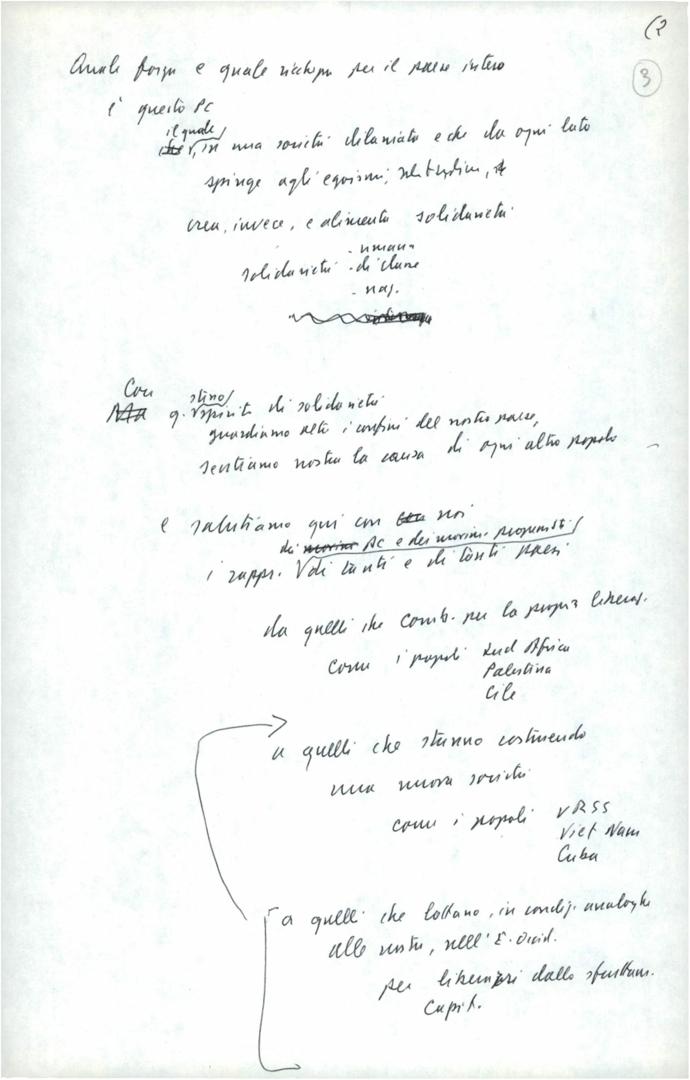 (2
3
Quale forza e quale ricchezza per il paese intero
è questo PC
il quale
che, in una società dilaniata e che da ogni lato
spinge agli egoismi, solitudini,
crea, invece, e alimenta solidarietà
- umana
solidarietà - di classe
- naz.
Con stesso
Ma q. spirito di solidarietà
guardiamo oltre i confini del nostro paese,
sentiamo nostra la causa di ogni altro popolo
e salutiamo qui con noi
dei movim PC e dei movim. progressisti
i rappr. di tanti e di tanti paesi
da quelli che comb. per la propria liberaz.
come i popoli Sud Africa
Palestina
Cile
a quelli che stanno costruendo
una nuova società
come i popoli URSS
Viet Nam
Cuba
a quelli che lottano, in condiz. analoghe
alle nostre, nell'E. Occid.
per liberarsi dallo sfruttam.
Capit.